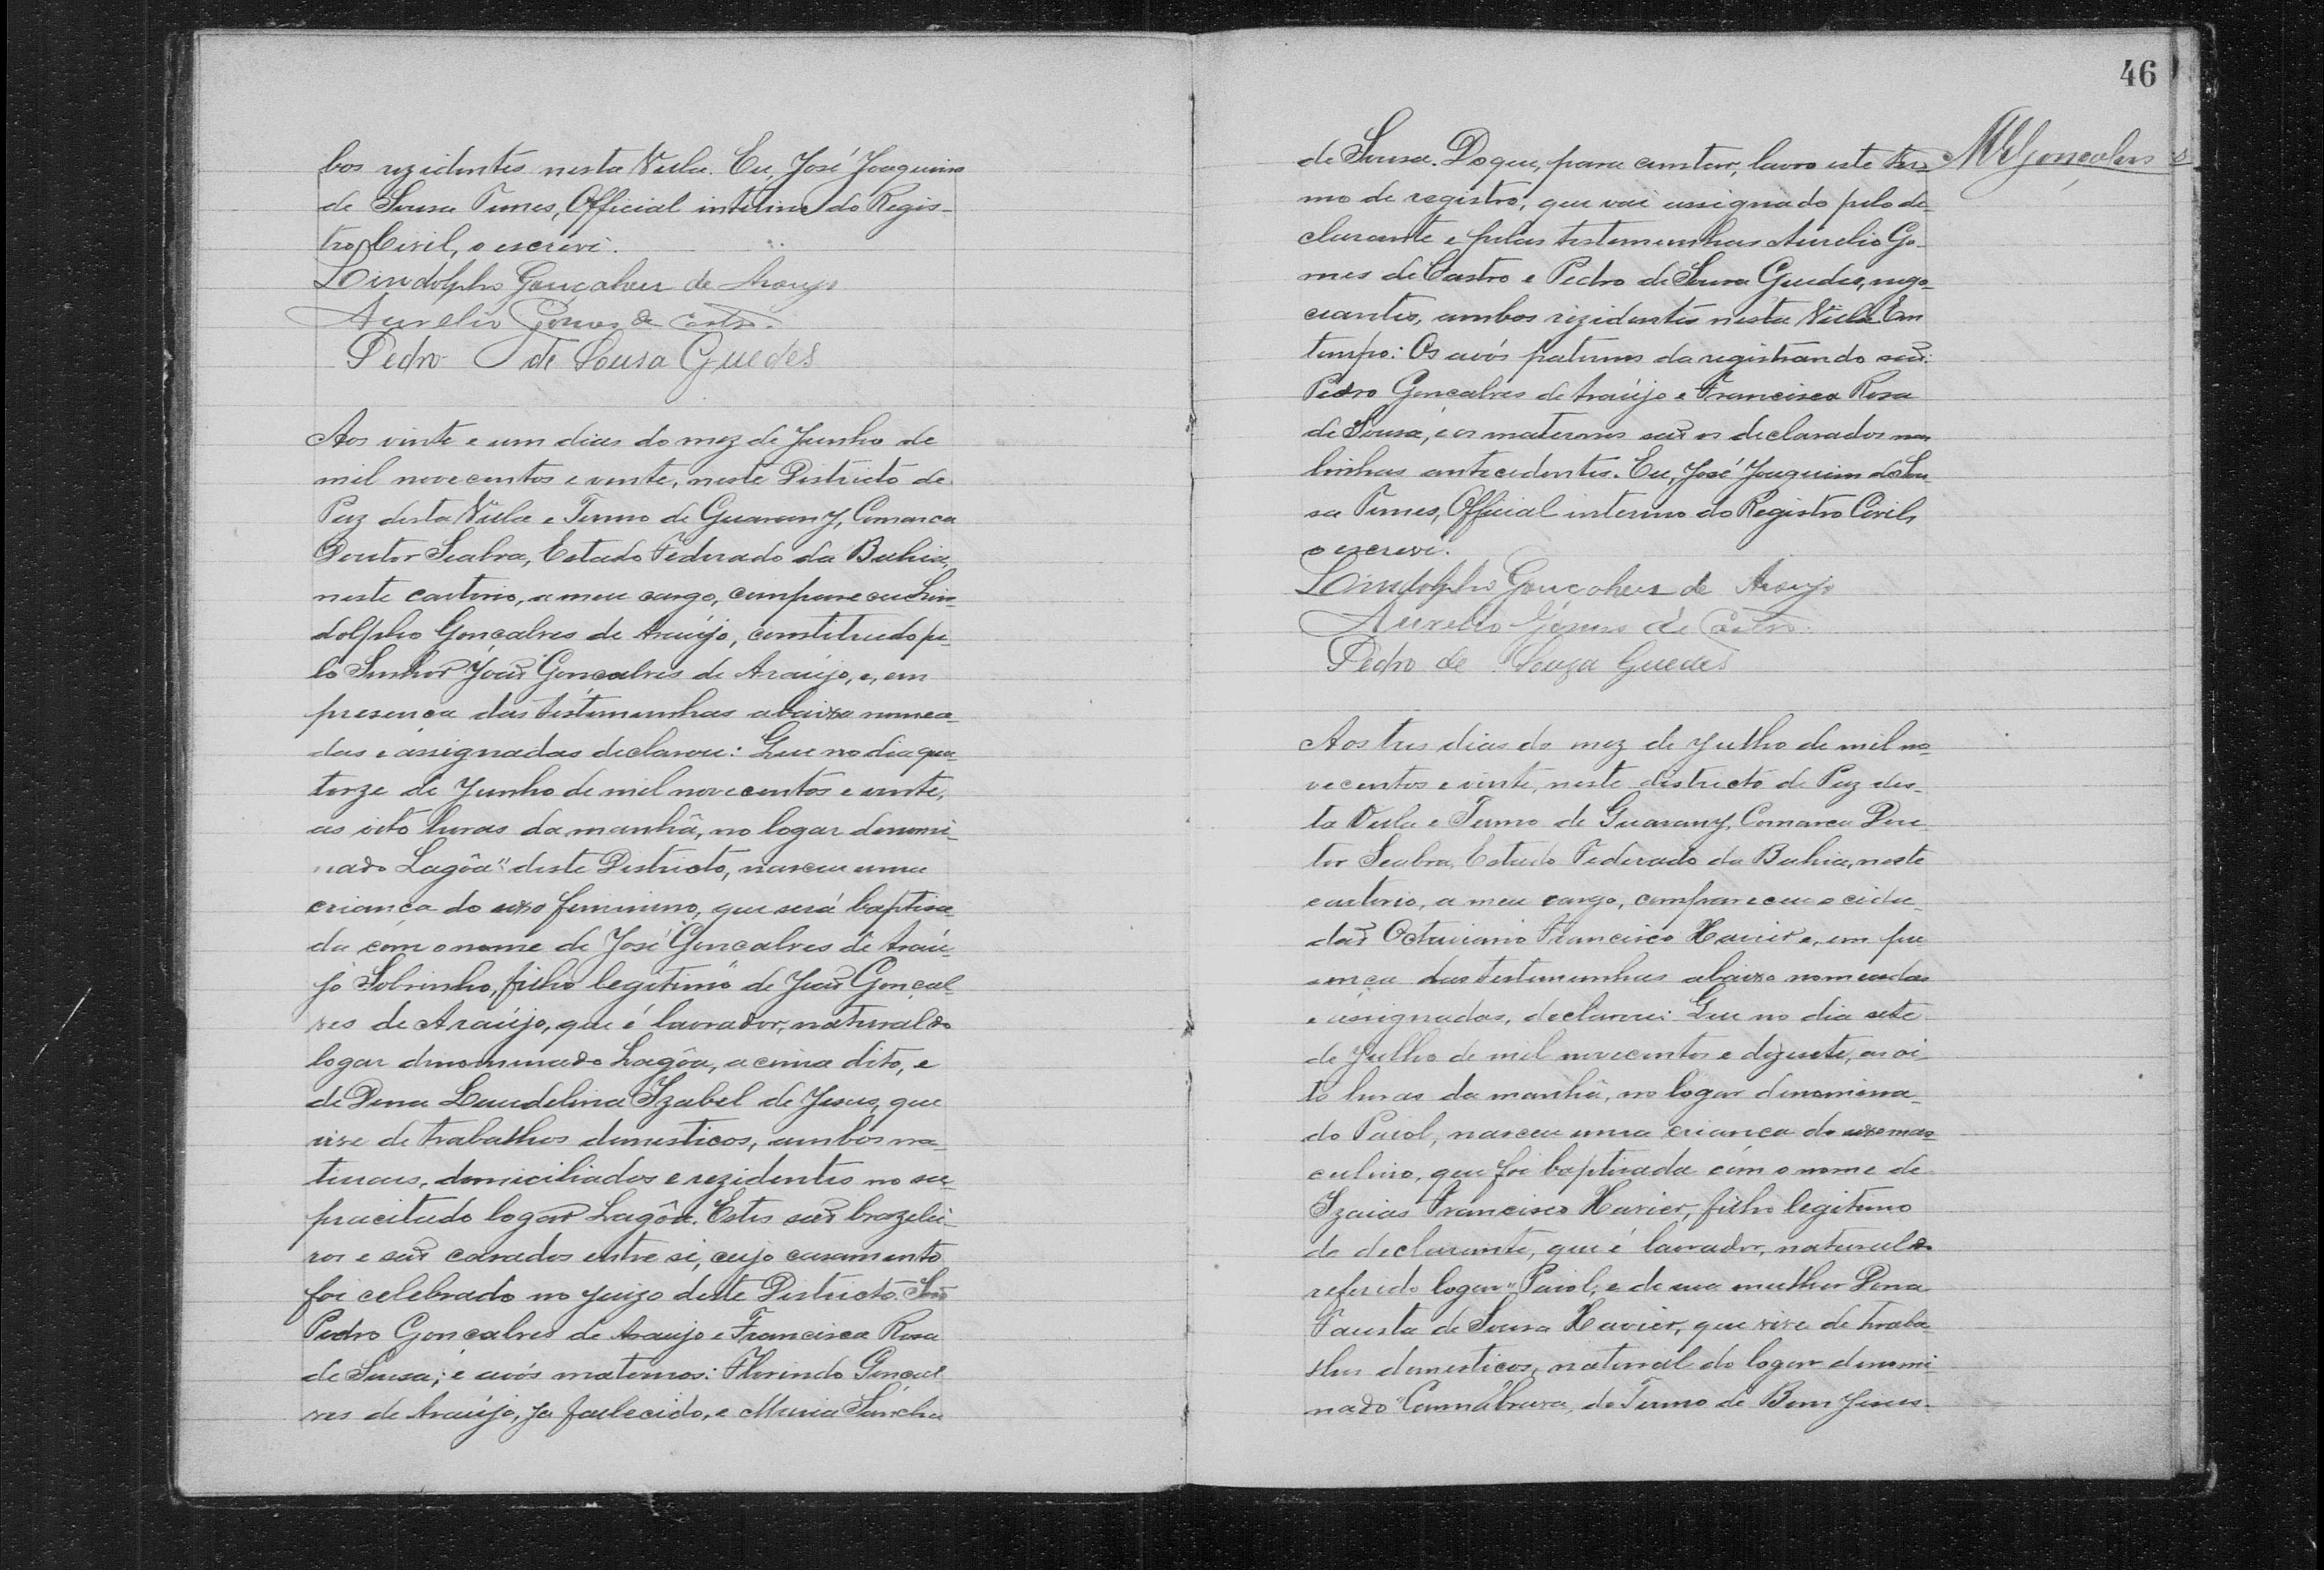 bos rezidentes nesta Villa. Eu, José Joaquim
de Sousa Tunes, Official interino do Regis-
tro Civil, o escrevi.
Lindolpho Gonçalves de Araujo
Aurelio Gomes de Castro.
Pedro de Sousa Guedes
Aos vinte e um dias do mez de Junho de
mil novecentos e vinte, neste Districto de
Paz desta Villa e Termo de Guarany, Comarca
Doutor Seabra, Estado Federado da Bahia,
neste cartorio, a meu cargo, compareceu Lin-
dolpho Gonçalves de Araújo, constituido pe-
lo Senhor João Gonçalves de Araújo, e, em
presença das testemunhas abaixo nomea-
das e assignadas declarou: Que no dia qua-
torze de Junho de mil novecentos e vinte,
as oito horas da manhã, no logar denomi-
nado Lagôa" deste Districto, nasceu uma
criança do sexo feminino, que será baptisa-
da com o nome de José Gonçalves de Araú-
jo Sobrinho, filho legitimo de João Gonçal-
ves de Araújo, que é lavrador, natural do
logar denominado Lagôa, acima dito, e
de Dona Laudelina Izabel de Jesus, que
vive de trabalhos domesticos, ambos na-
turaes, domiciliados e rezidentes no su-
pracitado logar Lagôa. Estes são brazilei-
ros e são casados entre si, cujo casamento
foi celebrado no juizo deste Districto. São
Pedro Gonçalves de Araujo e Francisca Rosa
de Sousa; e avós maternos: Florindo Gonçal
ves de Araújo, ja fallecido, e Maria Sancha
46
de Sousa. Do que, para constar, lavro este ter-
mo de registro, que vai assignado pelo de-
clarante e pelas testemunhas Aurelio Go-
mes de Castro e Pedro de Sousa Guedes, nego-
ciantes, ambos rezidentes nesta Villa. Em
tempo: Os avós paternos da registrando são:
Pedro Gonçalves de Araújo e Francisca Rosa
de Sousa, e os maternos são os declarados nas
linhas antecedentes. Eu, José Joaquim de Sou
sa Tunes, Official interino do Registro Civil,
o escrevi.
Lindolpho Gonçalves de Araujo
Aurelio Gomes de Castro.
Pedro de Souza Guedes
Aos tres dias do mez de Julho de mil no-
vecentos e vinte, neste districto de Paz des-
ta Villa e Termo de Guarany, Comarca Dou
tor Seabra, Estado Federado da Bahia, neste
cartorio, a meu cargo, compareceu o cida-
dão Octaviano Francisco Xavier e, em pre
sença das testemunhas abaixo nomeadas
e assignadas, declarou: Que no dia sete
de Julho de mil novecentos e dezesete, as oi-
to horas da manhã, no logar denomina-
do Paiol, nasceu uma criança do sexo mas-
culino, que foi baptisada com o nome de
Izaias Francisco Xavier, filho legitimo
do declarante, que é lavrador, natural do
referido logar "Paiol, e de sua mulher Dona
Fausta de Sousa Xavier, que vive de traba-
lhos domesticos, natural do logar denomi-
nado "Cannabrava, do Termo de Bom Jesus.